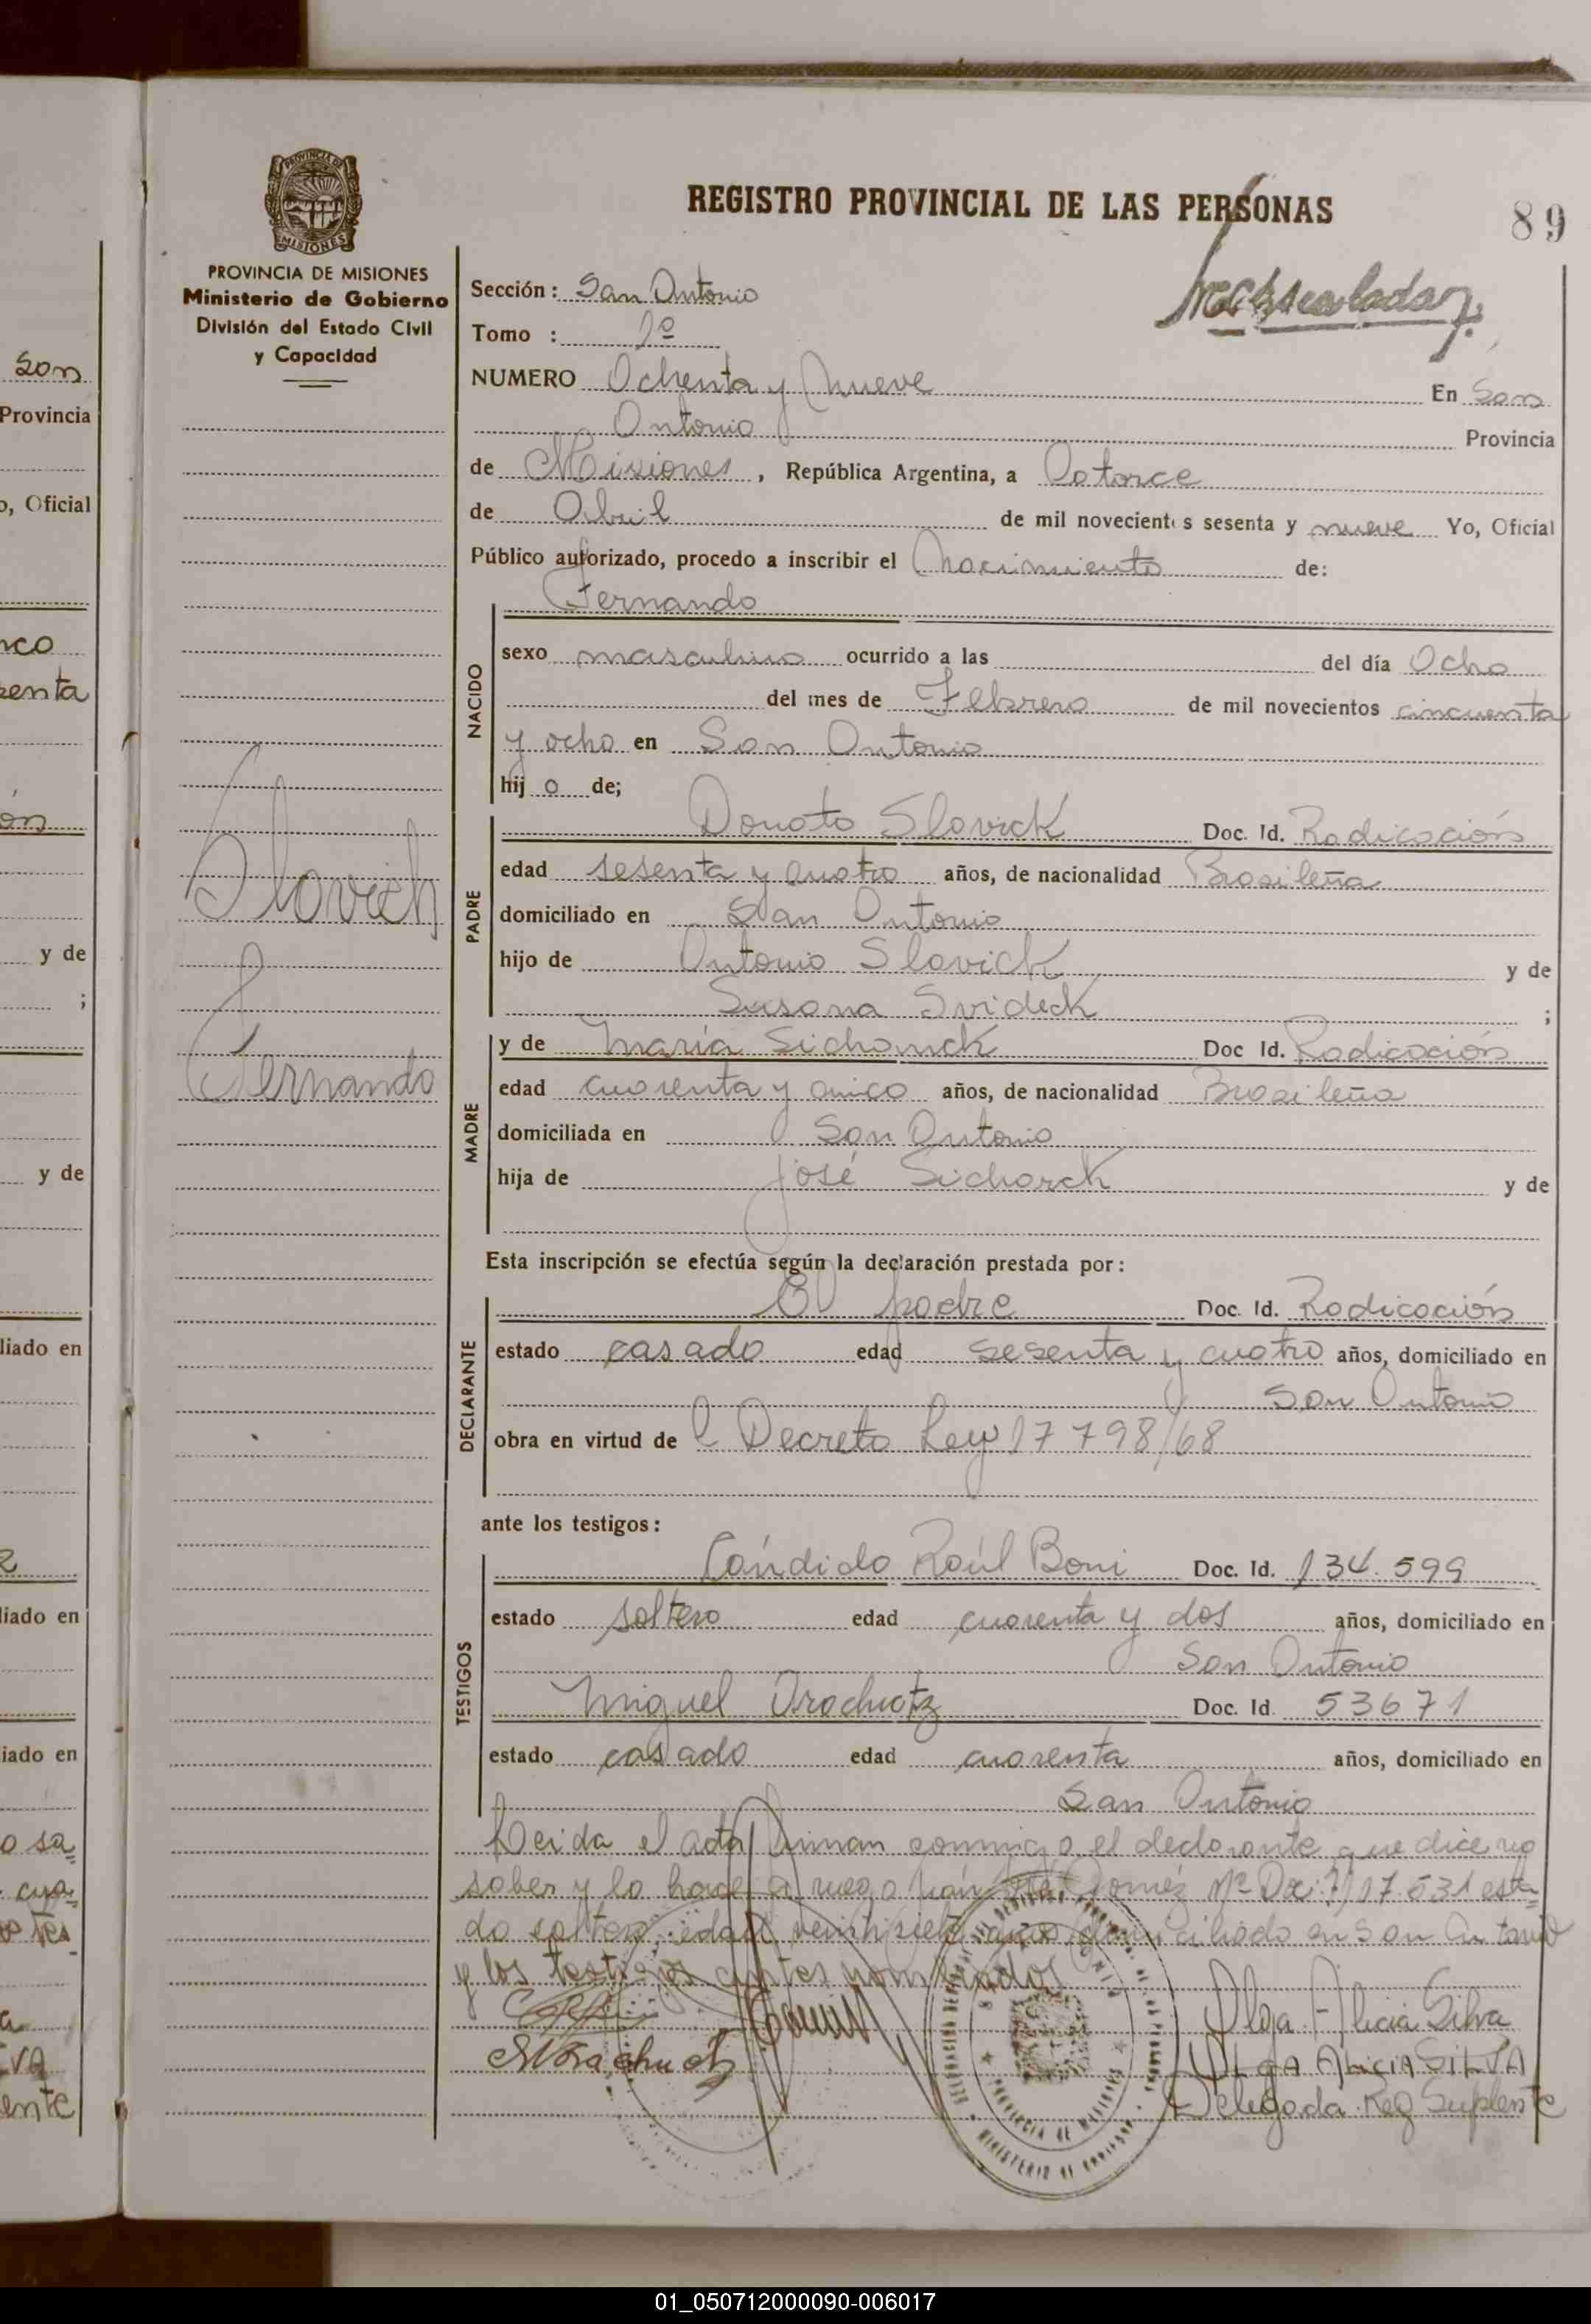 REGISTRO PROVINCIAL DE LAS PERSONAS
89
PROVINCIA DE MISIONES
Ministerio de Gobierno
División del Estado Civil
y Capacidad
Sección: San Antonio
Tomo : 1º
NUMERO Ochenta y Nueve En San
Antonio Provincia
de Misiones, República Argentina, a Catorce
de Abril de mil novecientos sesenta y nueve Yo, Oficial
Público autorizado, procedo a inscribir el Nacimiento de:
Fernando
NACIDO
sexo masculino ocurrido a las del día Ocho
del mes de Febrero de mil novecientos cincuenta
y ocho en San Antonio
hijo de;
Slovick
Fernando
PADRE
Donato Slovick Doc. Id. Radicación
edad sesenta y cuatro años, de nacionalidad Brasileña
domiciliado en San Antonio
hijo de Antonio Slovick y de
Susana Svideck ;
MADRE
y de María Doc Id. Radicación
edad cuarenta y cinco años, de nacionalidad Brasileña
domiciliada en San Antonio
hija de José y de
Esta inscripción se efectúa según la declaración prestada por:
DECLARANTE
El padre Doc. Id. Radicación
estado casado edad sesenta y cuatro años, domiciliado en
San Antonio
obra en virtud de l Decreto Ley 17798/68
ante los testigos:
TESTIGOS
Cándido Raúl Boni Doc. Id. 134.599
estado soltero edad cuarenta y dos años, domiciliado en
San Antonio
Miguel Doc. Id. 53671
estado casado edad cuarenta años, domiciliado en
San Antonio
Leida el acta firman conmigo el declarante que dice no
saber y lo hace a ruego Gomez Nº Doc. esta=
do soltero, edad veintisiete años domiciliado en San Antonio
y los testigos antes nombrados
Olga Alicia Silva
OLGA ALICIA SILVA
Delegada Reg Suplente
Son
Provincia
o, Oficial
nco
renta
ón
y de
;
y de
liado en
liado en
iado en
o sa
cua=
VA
ente
01_050712000090-006017